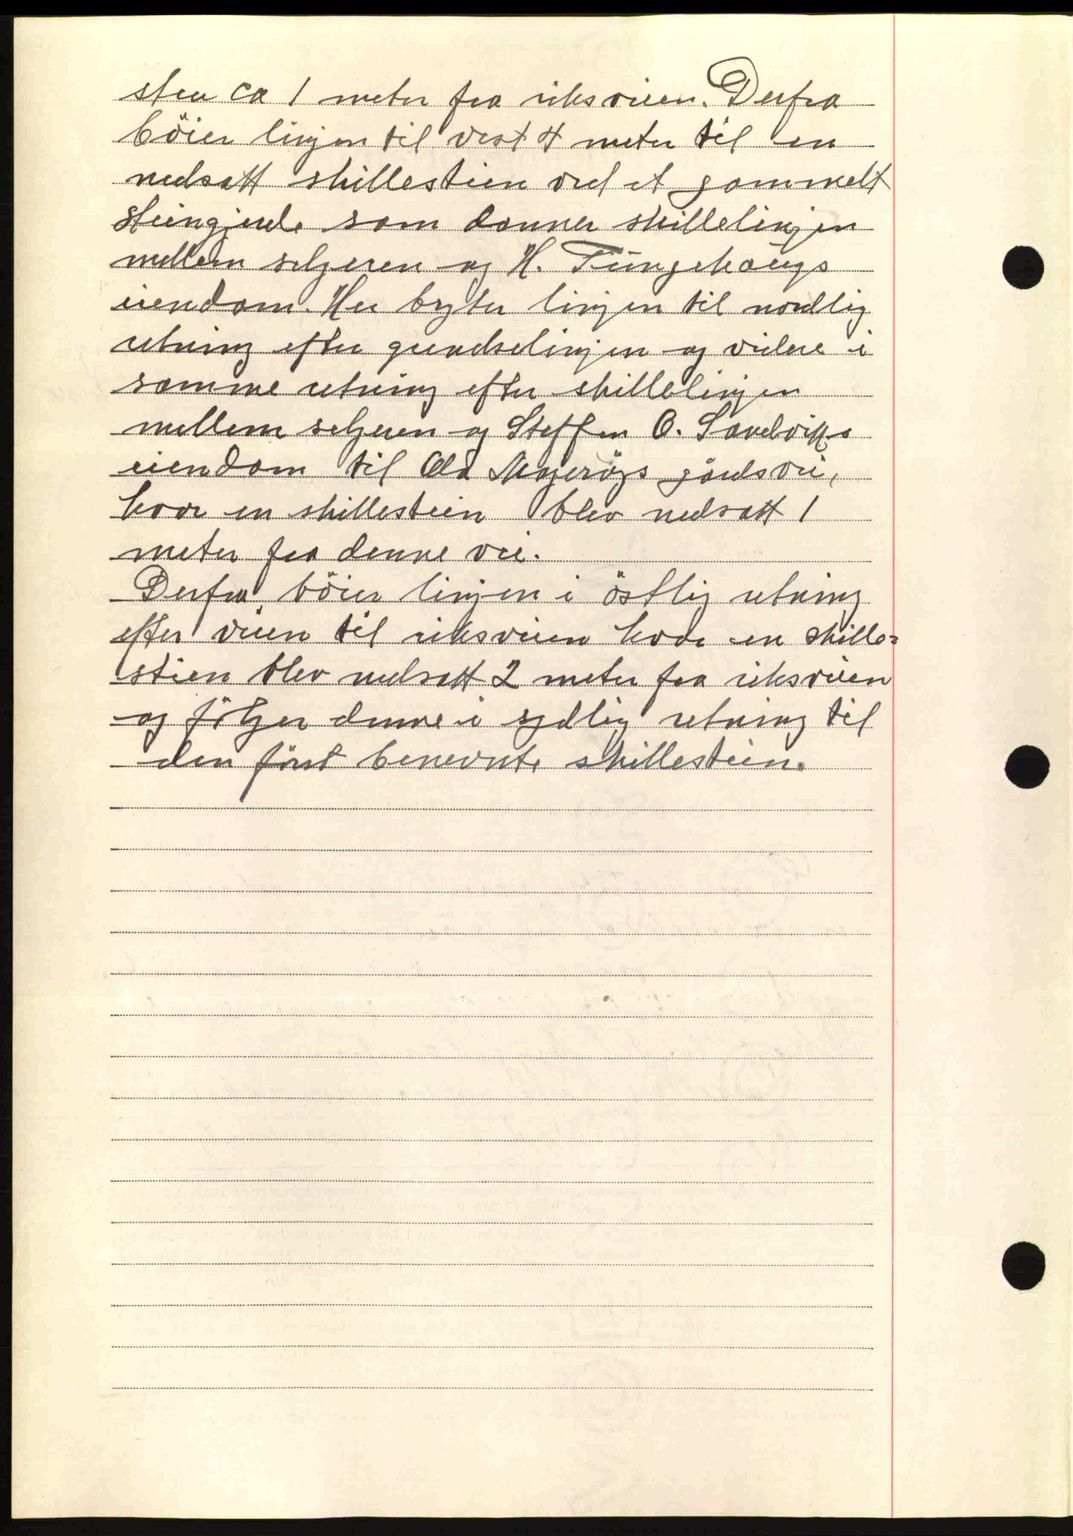 sten ca 1 meter fra riksveien. Derfra
böier linjen til vest 4 meter til en
nedsatt skillestein ved et gammelt
steingjerde som danner skillelinjen
mellem selgeren og H.
eiendom. Her bryter linjen til nordlig
retning efter grendselinjen og videre i
samme retning efter skillelinjen
mellem selgeren og Steffen O. Sandviks
eiendom til Ola gårdsvei,
hvor en skillestein blev nedsatt 1
meter fra denne vei.
Derfra böier linjen i östlig retning
efter veien til riksveien hvor en skille=
stein blev nedsatt 2 meter fra riksveien
og fölger denne i sydlig retning til
den först benevnte skillestein.